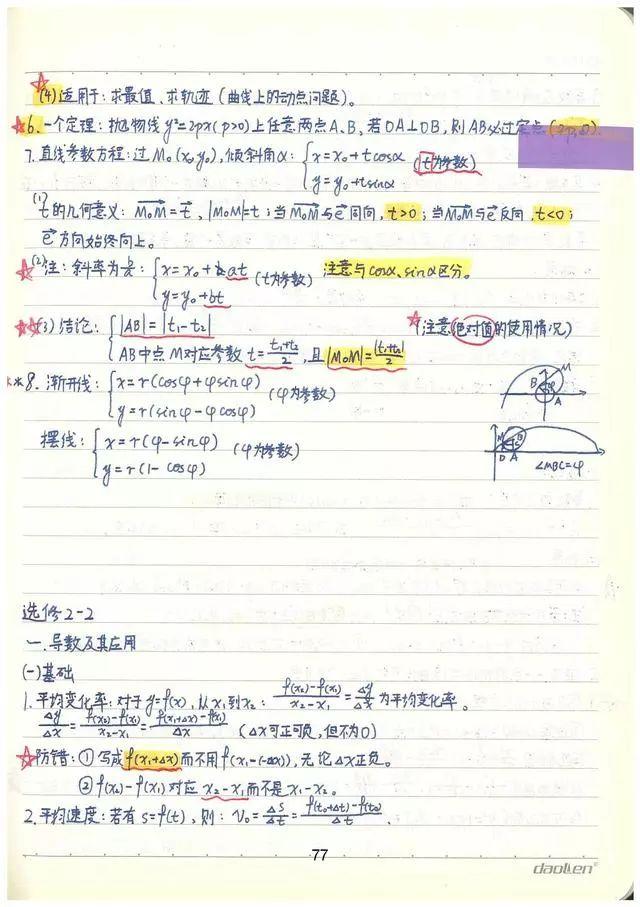 (4)适用于:求最值、求轨迹(曲线上的动点问题)。
6.一个定理:抛物线y²=2px(p>0)上任意两点A、B,若OA⊥OB,则AB必过定点(2p,0).
7.直线参数方程:过M₀(x₀,y₀),倾斜角α:{x=x₀+tcosα (t为参数)
y=y₀+tsinα
(1)t的几何意义:M₀M=t,|M₀M|=t;当M₀M与e同向,t>0;当M₀M与e反向,t<0;
e方向始终向上。
(2)注:斜率为b/a:{x=x₀+at (t为参数) 注意与cosα、sinα区分。
y=y₀+bt
(3)结论:{|AB|=|t₁-t₂| (注意绝对值的使用情况)
AB中点M对应参数t=(t₁+t₂)/2,且|M₀M|=|t₁+t₂|/2
8.渐开线:{x=r(cosφ+φsinφ) (φ为参数)
y=r(sinφ-φcosφ)
M
B φ
A
摆线:{x=r(φ-sinφ) (φ为参数)
y=r(1-cosφ)
M B
D A
∠MBC=φ
选修2-2
一.导数及其应用
(一)基础
1.平均变化率:对于y=f(x),从x₁到x₂:(f(x₂)-f(x₁))/(x₂-x₁)=Δy/Δx为平均变化率。
Δy/Δx=(f(x₂)-f(x₁))/(x₂-x₁)=(f(x₁+Δx)-f(x₁))/Δx (Δx可正可负,但不为0)
防错:①写成f(x₁+Δx)而不用f(x₁-(-Δx)),无论Δx正负。
②f(x₂)-f(x₁)对应x₂-x₁而不是x₁-x₂。
2.平均速度:若有s=f(t),则:v₀=Δs/Δt=(f(t₀+Δt)-f(t₀))/Δt.
77
daolen®